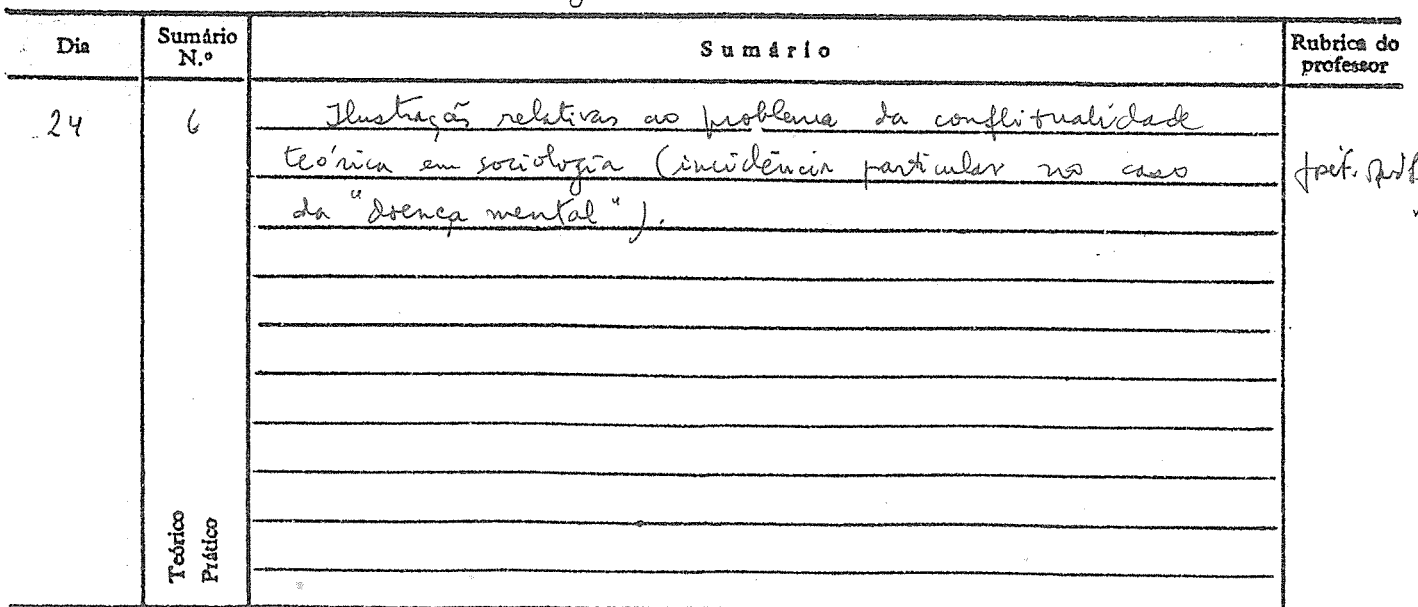 Dia Sumário N.º Sumário Rubrica do professor
24 6 Ilustrações relativas ao problema da conflitualidade
teórica em sociologia (incidência particular no caso
da "doença mental").
Teórico
Prático